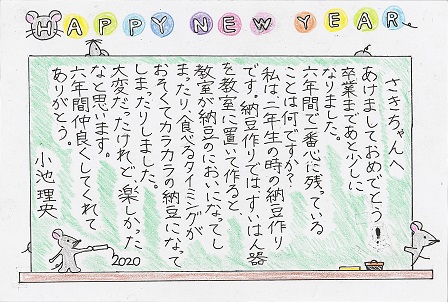 HAPPY NEW YEAR
さきちゃんへ
あけましておめでとう!
卒業まであと少しに
なりました。
六年間で一番心に残っている
ことは何ですか?
私は、二年生の時の納豆作り
です。納豆作りでは、すいはん器
を教室に置いて作ると、
教室が納豆のにおいになってし
まったり、食べるタイミングが
おそくてカラカラの納豆になって
しまったりしました。
大変だったけれど、楽しかった
なと思います。
六年間仲良くしてくれて
ありがとう。
小池理央
2020